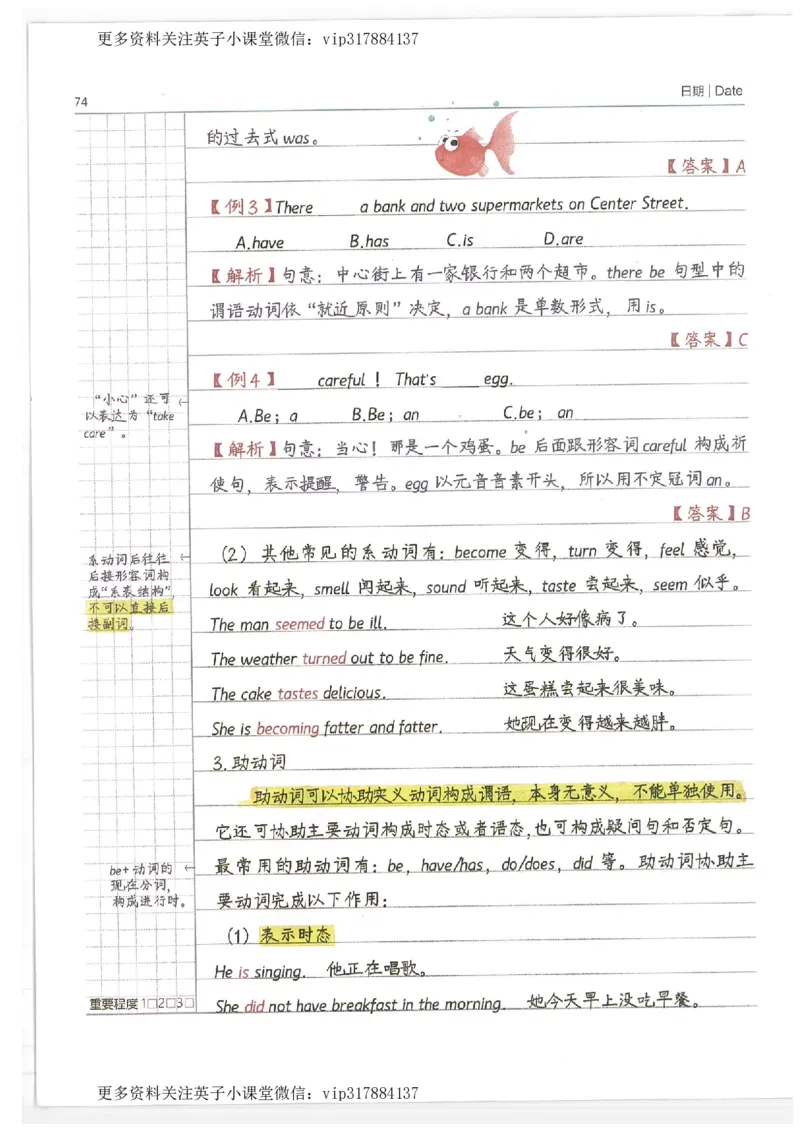 更多资料关注英子小课堂微信：vip317884137
日期 | Date
74
的过去式 was。
【答案】A
【例3】There      a bank and two supermarkets on Center Street.
A.have      B.has      C.is      D.are
【解析】句意：中心街上有一家银行和两个超市。there be 句型中的
谓语动词依“就近原则”决定，a bank 是单数形式，用 is。
【答案】C
【例4】____ careful！ That's ____ egg.
A.Be；a      B.Be；an      C.be；an
【解析】句意：当心！那是一个鸡蛋。be 后面跟形容词 careful 构成祈
使句，表示提醒，警告。egg 以元音音素开头，所以用不定冠词 an。
【答案】B
“小心”还可
以表达为“take
care”。
（2）其他常见的系动词有：become 变得，turn 变得，feel 感觉，
look 看起来，smell 闻起来，sound 听起来，taste 尝起来，seem 似乎。
系动词后往往
后接形容词构
成“系表结构”，
不可以直接后
接副词。
The man seemed to be ill.      这个人好像病了。
The weather turned out to be fine.      天气变得很好。
The cake tastes delicious.      这蛋糕尝起来很美味。
She is becoming fatter and fatter.      她现在变得越来越胖。
3.助动词
助动词可以协助实义动词构成谓语，本身无意义，不能单独使用。
它还可协助主要动词构成时态或者语态，也可构成疑问句和否定句。
最常用的助动词有：be，have/has，do/does，did 等。助动词协助主
要动词完成以下作用：
be+动词的
现在分词，
构成进行时。
（1）表示时态
He is singing.  他正在唱歌。
She did not have breakfast in the morning.  她今天早上没吃早餐。
重要程度 1□2□3□
更多资料关注英子小课堂微信：vip317884137